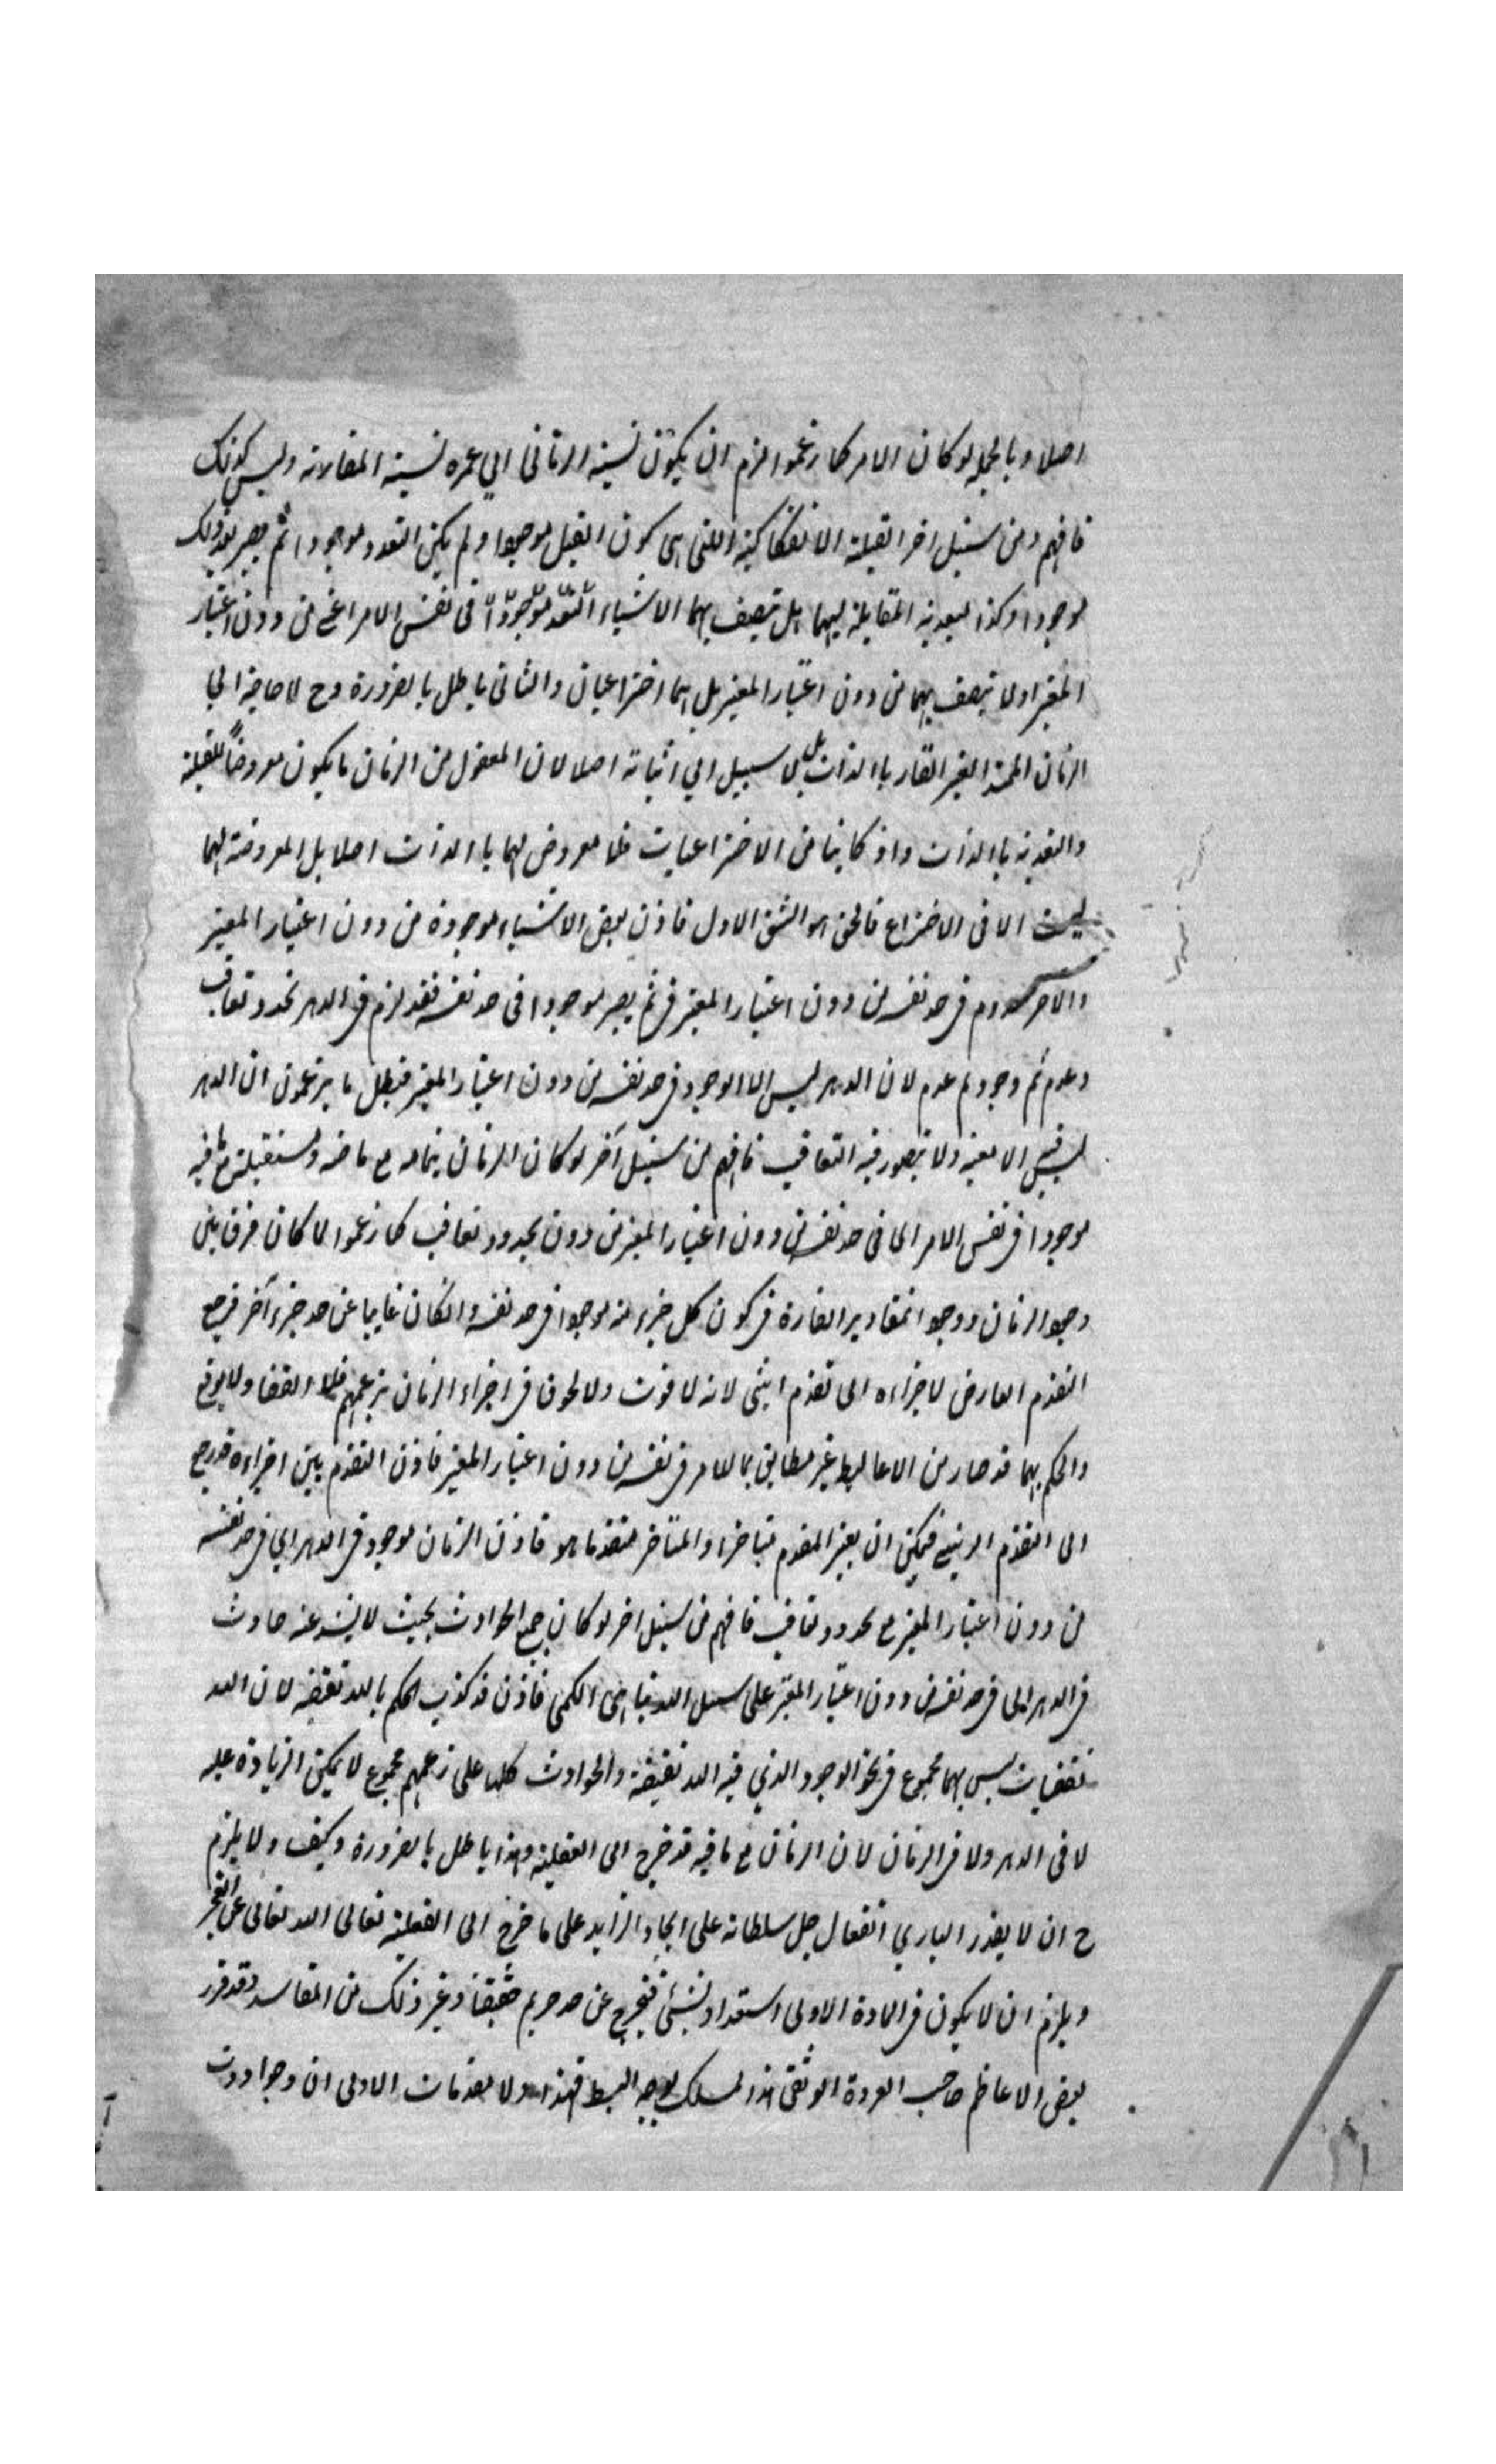 اصلا وبالجملة لو كان الامر كما زعموا لزم ان يكون نسبة الزمانى الى عمره نسبة المقارنة وليس كذلك
فافهم ومن سبيل اخر القبلية الانفكاكية اللتى هى كون القبل موجودا ولم يكن البعد موجودا ثم يصير بعد ذلك
موجودا وكذا البعدية المقابلة لها هل تتصف بهما الاشياء فى نفس الامر اعنى من دون اعتبار
المعتبر اولا تتصف بهما من دون اعتبار المعتبر بل هما اختراعيان والثانى باطل بالضرورة وح لا حاجة الى
الزمان الممتد الغير القار بالذات بل لا سبيل الى اثباته اصلا لان المعقول من الزمان ما يكون معروضا للقبلية
والبعدية بالذات واذ كانتا من الاختراعيات فلا معروض لهما بالذات اصلا بل المعروضة لهما
ليست الا فى الاختراع فالحق هو الشق الاول فاذن بعض الاشياء موجودة من دون اعتبار المعتبر
والاخر معدوم فى حد نفسه من دون اعتبار المعتبر ثم يصير موجودا فى حد نفسه فقد لزم فى الدهر تجدد وتعاقب
وعدم ثم وجود ثم عدم لان الدهر ليس الا الوجود فى حد نفسه من دون اعتبار المعتبر فبطل ما يزعمون ان الدهر
ليس فيه الا معية ولا يتصور فيه التعاقب فافهم من سبيل آخر لو كان الزمان بتمامه مع ماضيه ومستقبله مع ما فيه
موجودا فى نفس الامر اى فى حد نفسه من دون اعتبار المعتبر من دون تجدد وتعاقب كما زعموا لما كان فرق بين
وجود الزمان ووجود المقادير القارة فى كون كل جزء منه موجودا فى حد نفسه وان كان غايبا عن حد جزء آخر فيرجع
التقدم العارض لاجزاءه الى تقدم لانه لا فوت ولا لحوق فى اجزاء الزمان بزعمهم فلا انقضاء ولا
والحكم بهما قد صار من الاغاليط غير مطابق بما للامر فى نفسه من دون اعتبار المعتبر فاذن التقدم بين اجزاءه قد رجع
الى التقدم الرتبى فيمكن ان يصير المقدم متاخرا والمتاخر متقدما هو فاذن الزمان موجود فى الدهر اى فى حد نفسه
من دون اعتبار المعتبر مع تجدد وتعاقب فافهم من سبيل اخر لو كان جميع الحوادث بحيث لا يشذ عنه حادث
فى الدهر اى فى حد نفسه من دون اعتبار المعتبر على سبيل اللاتناهى الكمى فاذن قد كذب الحكم باللاتقفية لان اللا
تقفيات ليس بها مجموع فى نحو الوجود الذى فيه اللاتقفية والحوادث كلها على زعمهم مجموع لا يمكن الزيادة عليه
لا فى الدهر ولا فى الزمان لان الزمان مع ما فيه قد خرج الى الفعلية وهذا باطل بالضرورة وكيف ولا يلزم
ح ان لا يقدر البارى الفعال جل سلطانه على ايجاد الزايد على ما خرج الى الفعلية تعالى الله تعالى عن العجز
ويلزم ان لا يكون فى المادة الاولى استعداد لشىء فيخرج عن حد حريم حقيقتها وغير ذلك من المفاسد وقد قرر
بعض الاعاظم صاحب العروة الوثقى هذا المسلك بوجه ابسط فمهد اولا مقدمات الاولى ان وجود